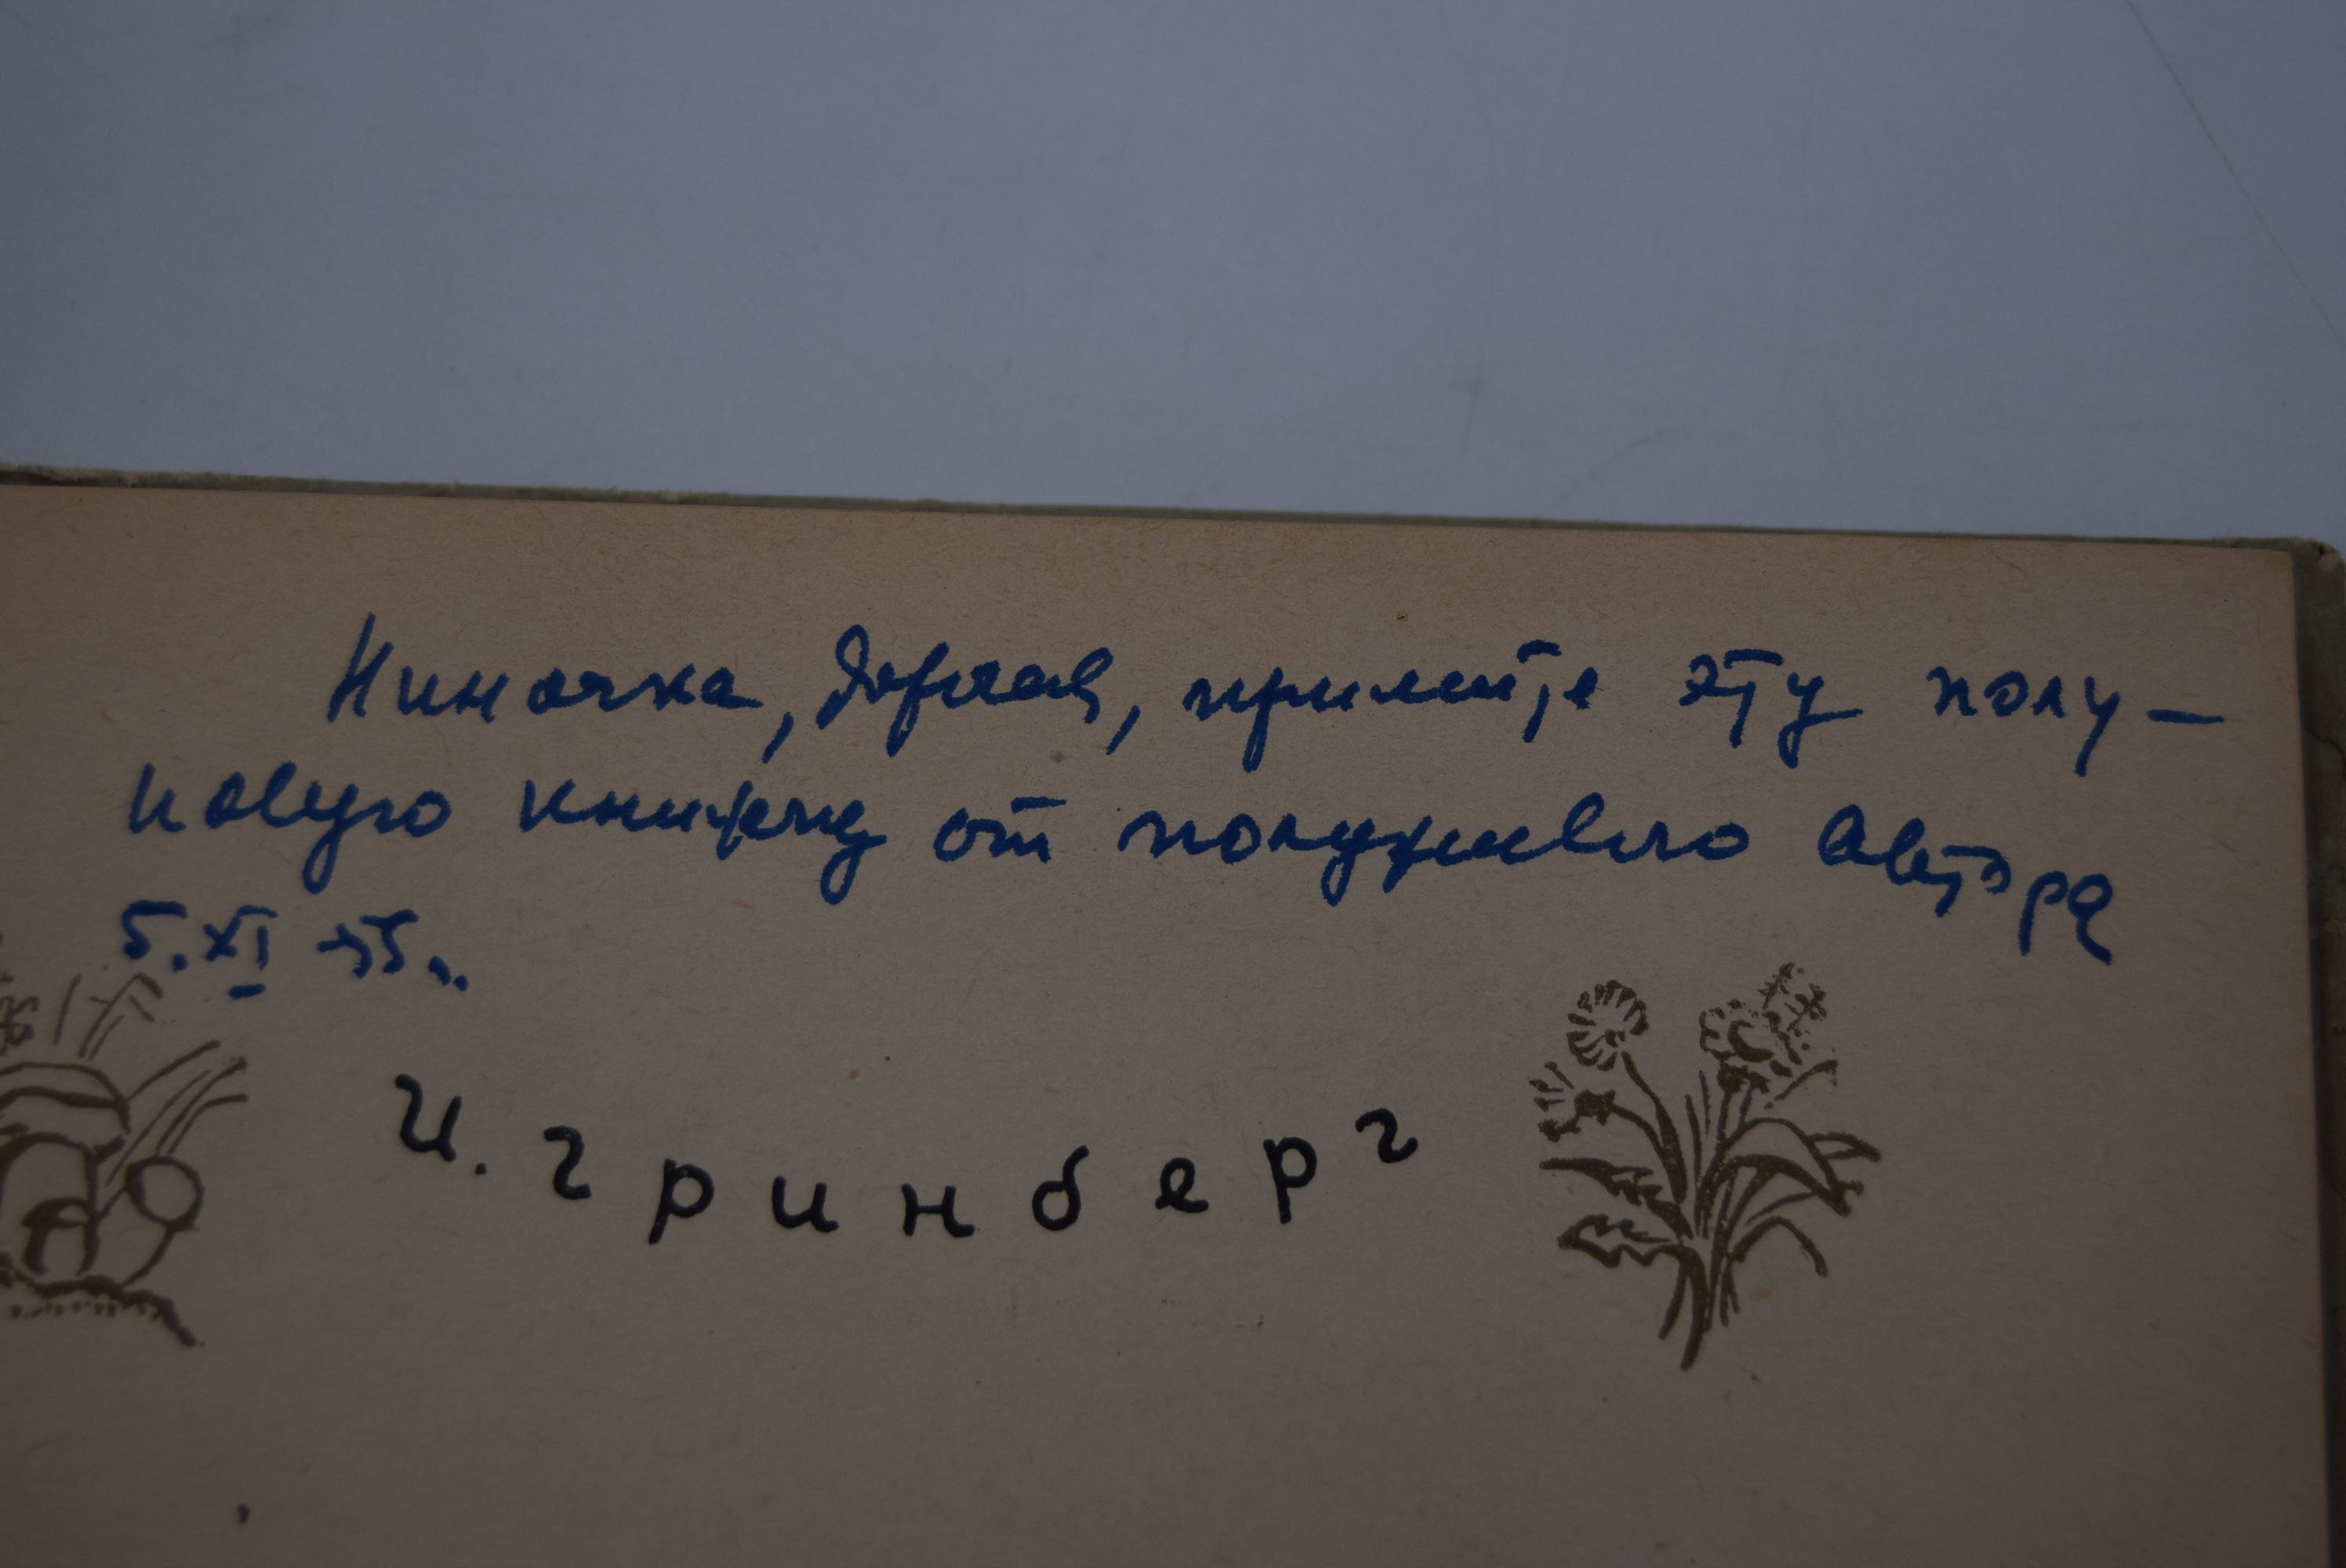 Ниночка, дорогая, примите эту полу-
новую книжечку от полуживого автора
5.XI 55 г.
И. Гринберг